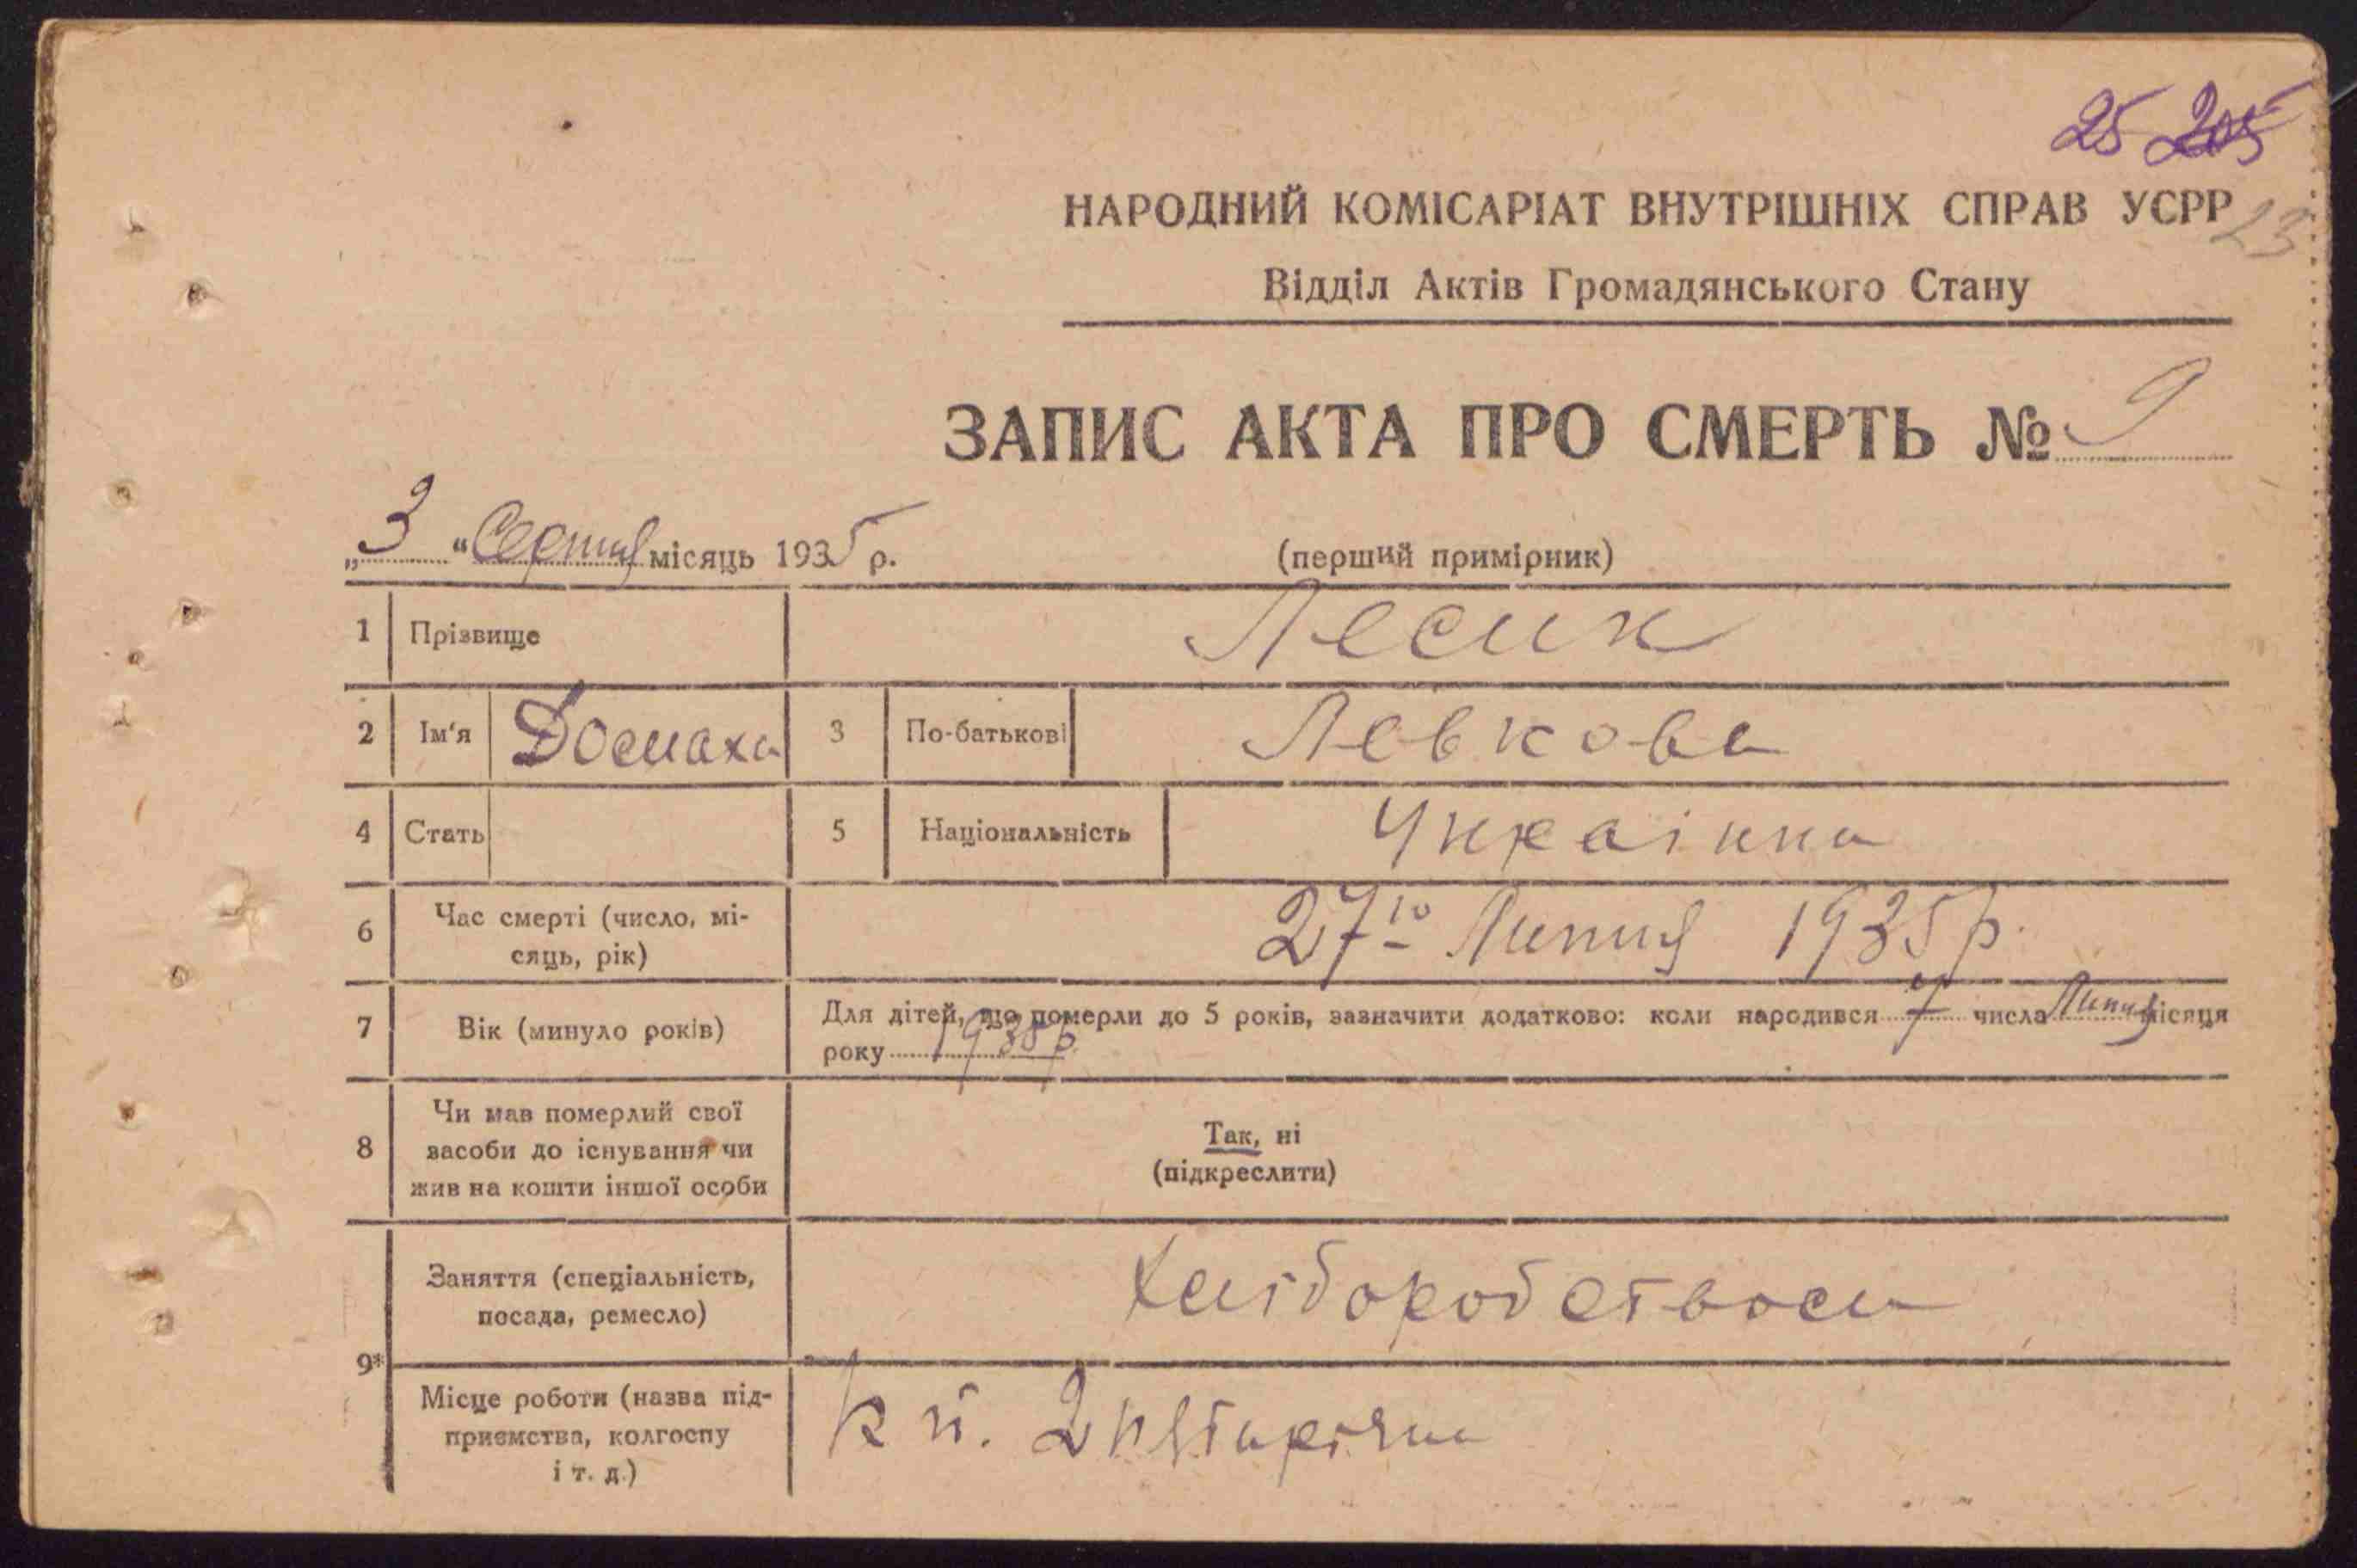 25 205
НАРОДНИЙ КОМІСАРІАТ ВНУТРІШНІХ СПРАВ УСРР
23
Відділ Актів Громадянського Стану
ЗАПИС АКТА ПРО СМЕРТЬ № 9
„3“ Серпня місяць 1935 р.
(перший примірник)
1 Прізвище Лесик
2 Ім'я Домаха 3 По-батькові Левкова
4 Стать 5 Національність Українка
6 Час смерті (число, мі-
сяць, рік) 27го Липня 1935 р.
7 Вік (минуло років) Для дітей, що померли до 5 років, зазначити додатково: коли народився 7 числа Липня місяця
року 1935 р.
8 Чи мав померлий свої
засоби до існування чи
жив на кошти іншої особи
Так, ні
(підкреслити)
9* Заняття (спеціальність,
посада, ремесло) Хліборобством
Місце роботи (назва під-
приємства, колгоспу
і т. д.)
к г. 2 п'ятирічка